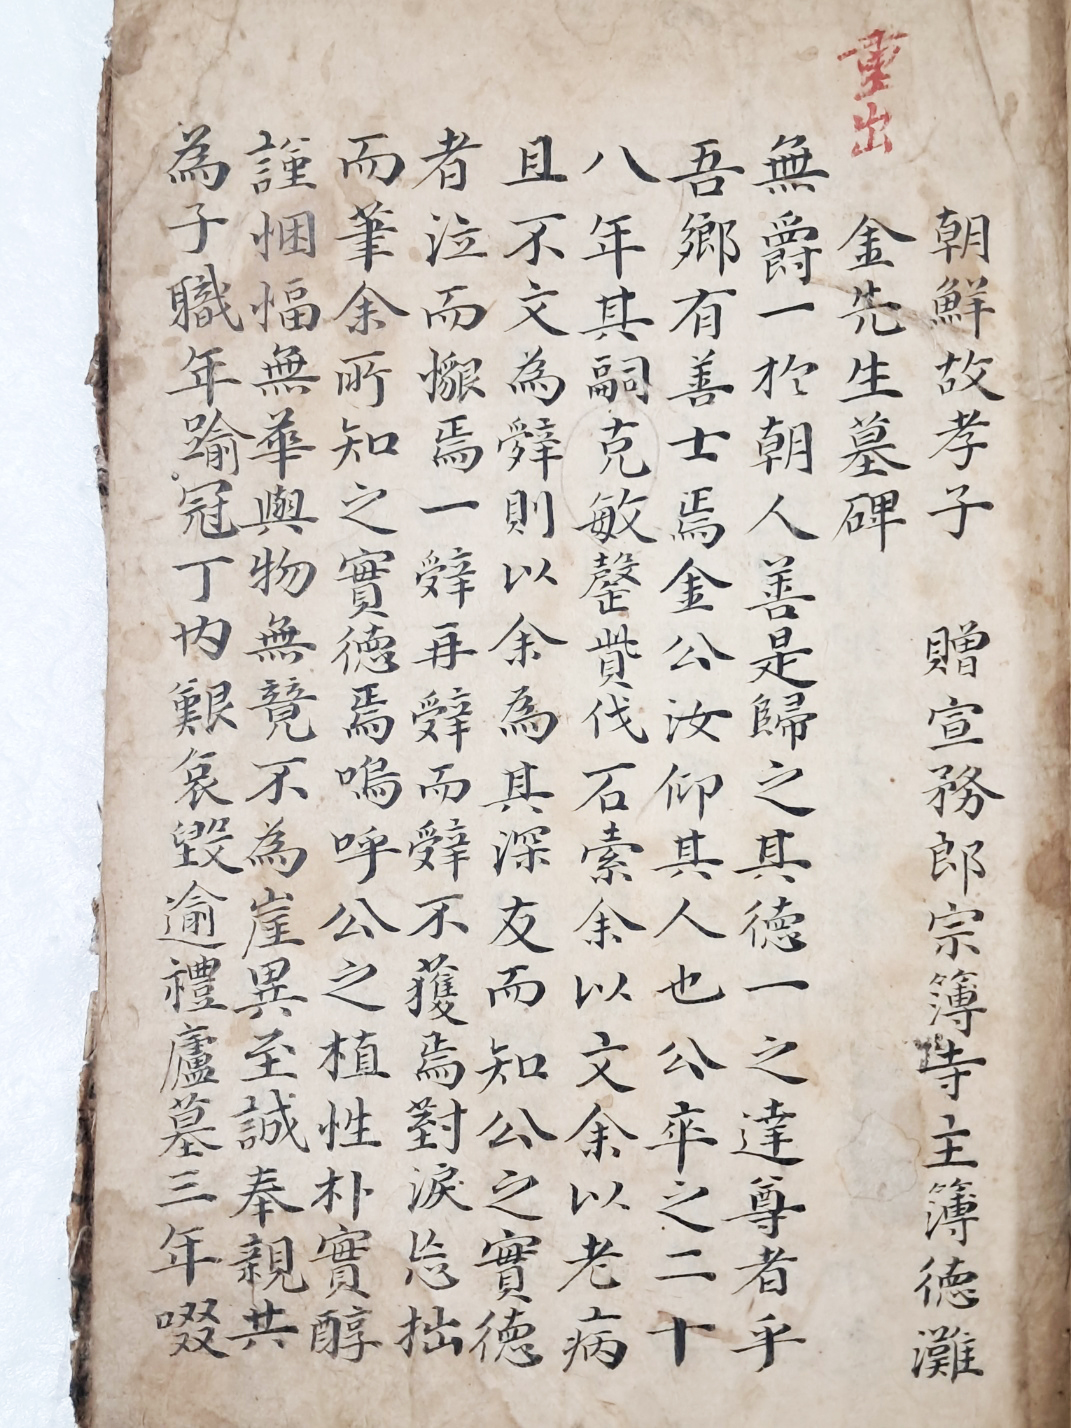 重出
朝鮮故孝子 贈宣務郎宗簿寺主簿德灘
金先生墓碑
無爵一於朝人善是歸之其德一之達尊者乎
吾鄉有善士焉金公汝仰其人也公卒之二十
八年其嗣克敏罄貲伐石索余以文余以老病
且不文為辭則以余為其深友而知公之實德
者泣而懇焉一辭再辭而辭不獲焉對淚忘拙
而筆余所知之實德焉嗚呼公之植性朴實醇
謹悃愊無華與物無競不為崖異至誠奉親共
為子職年踰冠丁內艱哀毀逾禮廬墓三年啜